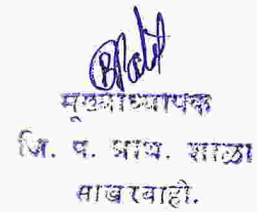 मुख्याध्यापक
जि. प. प्राथ. शाळा
साखरवाही.